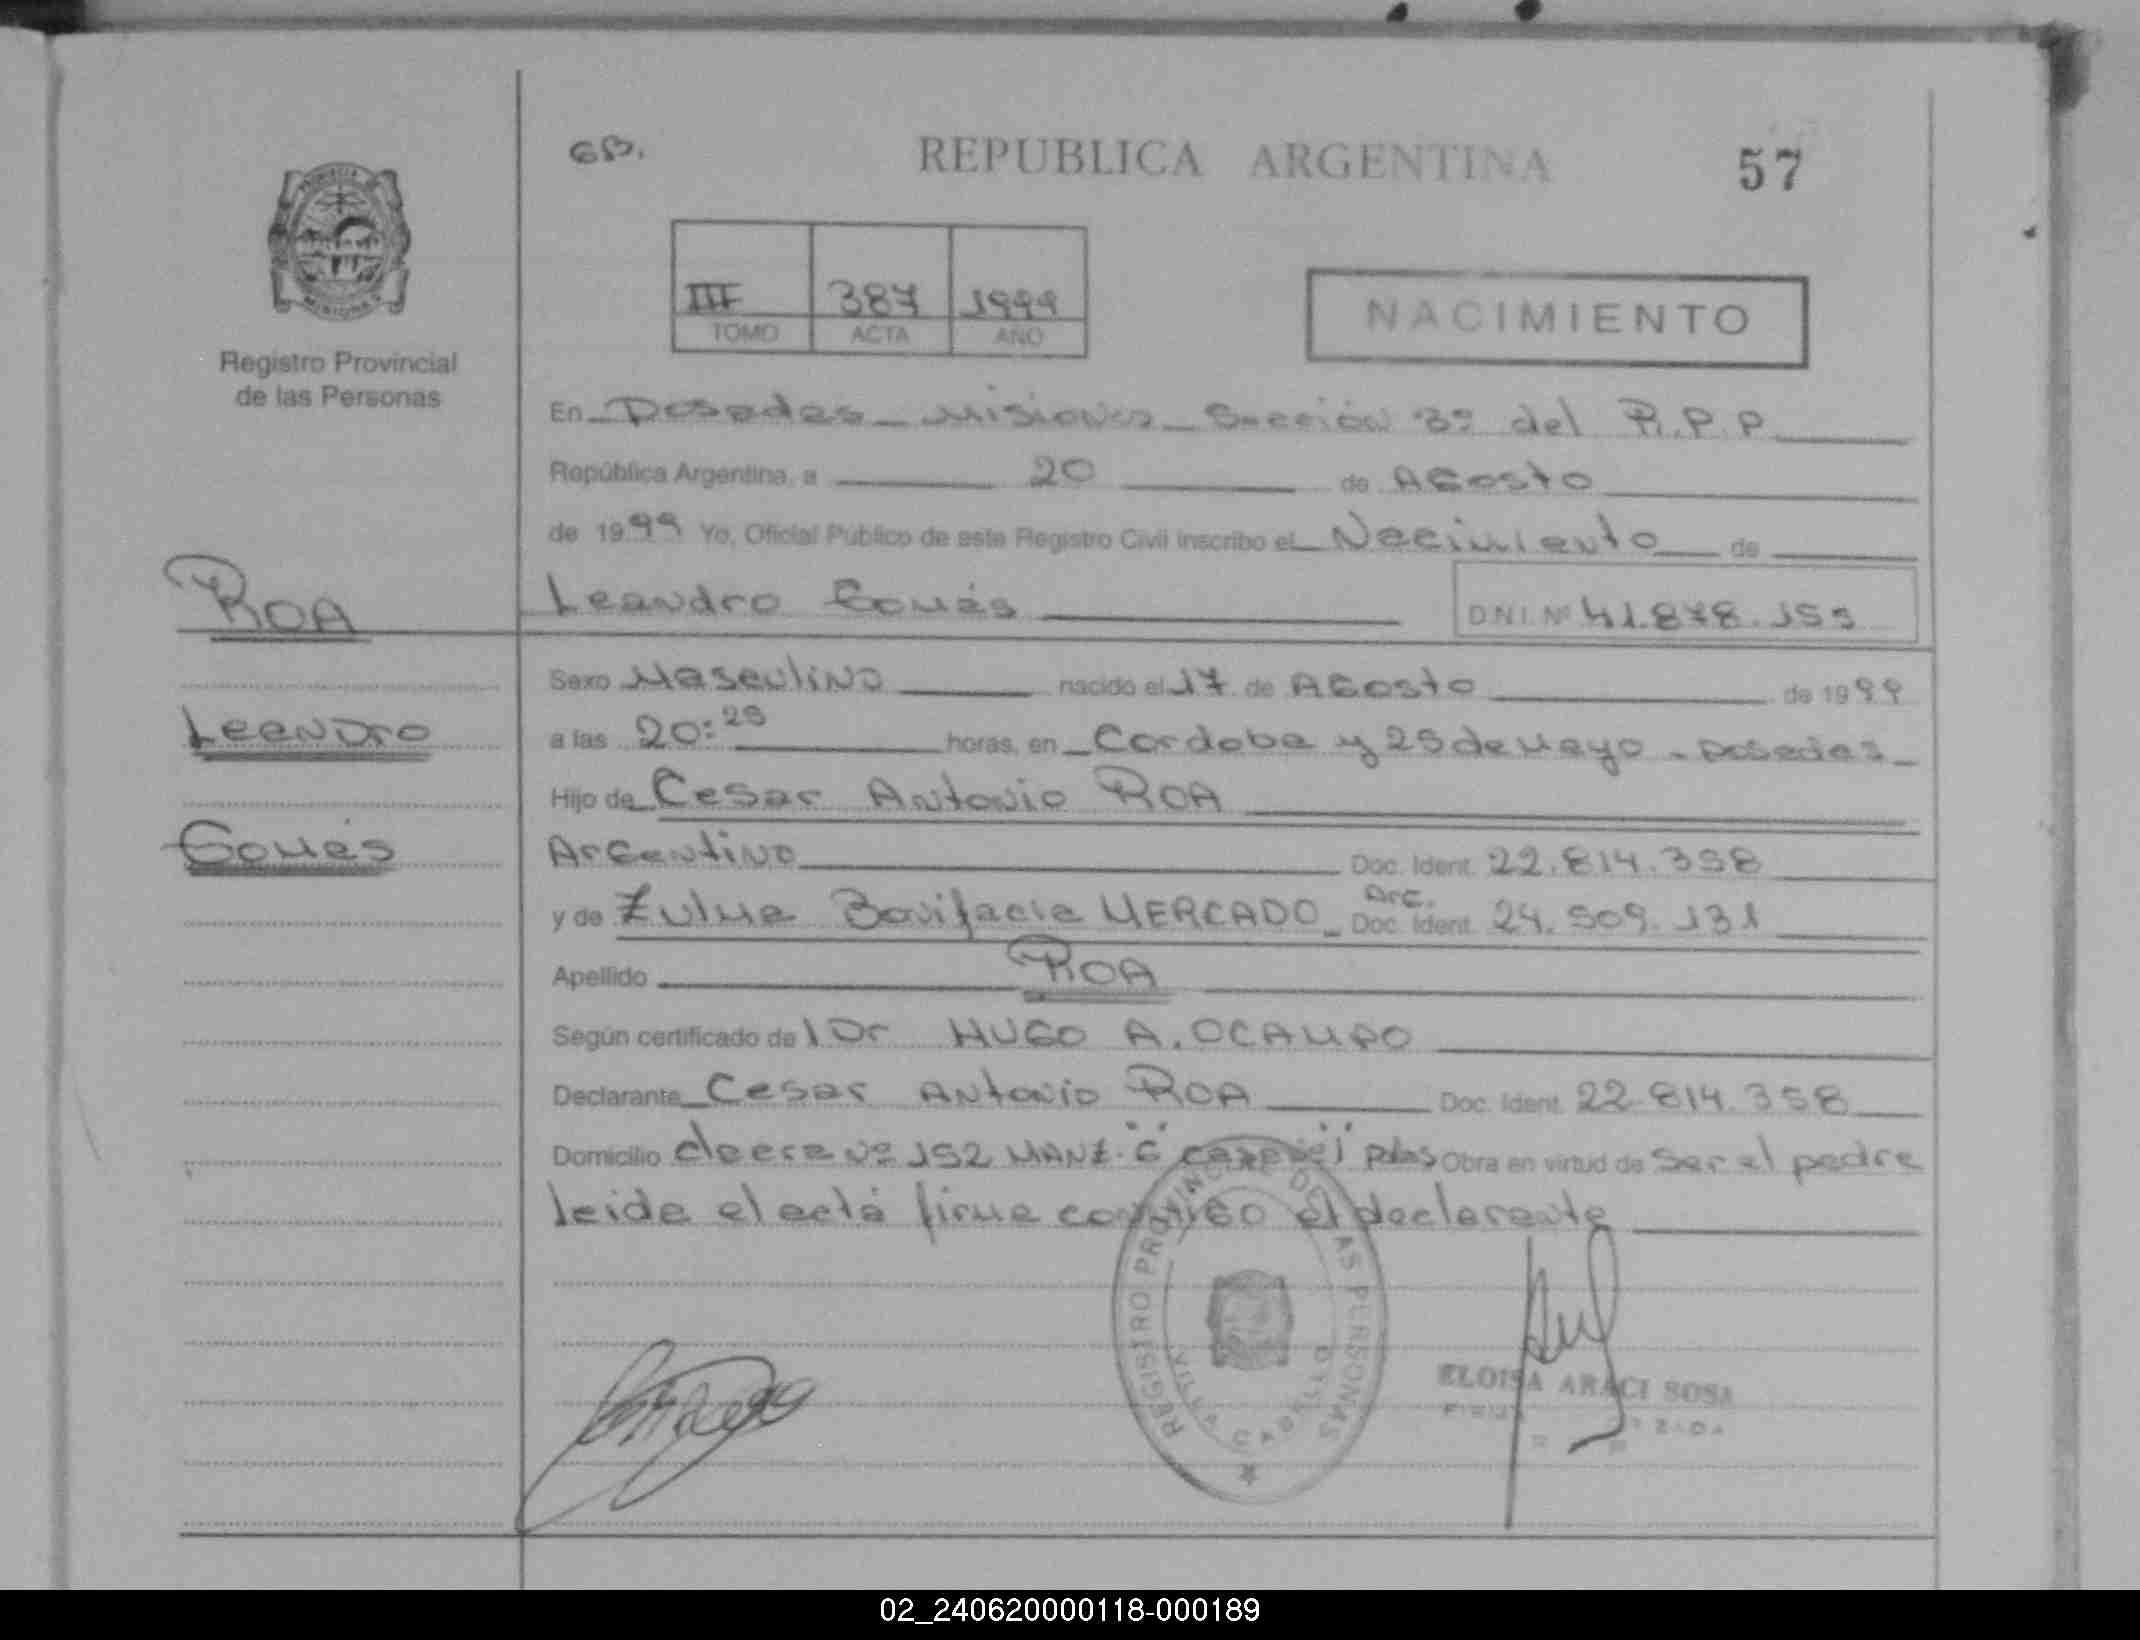 GB.
REPUBLICA ARGENTINA
57
PROVINCIA DE
MISIONES
Registro Provincial
de las Personas
III 387 1999
TOMO ACTA AÑO
NACIMIENTO
En Posadas - Misiones - Sección 3º del R.P.P
República Argentina, a 20 de Agosto
de 1999 Yo, Oficial Público de este Registro Civil inscribo el Nacimiento de
ROA
Leandro Gomés D.N.I. Nº 41.878.155
Sexo Masculino nacido el 17 de Agosto de 1999
Leandro
a las 20:25 horas, en Cordoba y 25 de Mayo - Posadas -
Hijo de Cesar Antonio ROA
Gomés
Argentino Doc. Ident. 22.814.358
y de Zulma Bonifacia MERCADO - Arg. Doc. Ident. 24.509.131
Apellido ROA
Según certificado de l Dr HUGO A. OCAMPO
Declarante Cesar Antonio ROA Doc. Ident. 22.814.358
Domicilio chacra Nº 152 MANZ. "G" Pdas Obra en virtud de ser el padre
leida el acta firma conmigo el declarante
REGISTRO PROVINCIAL DE LAS PERSONAS
VILLA CABELLO
ELOISA ARACI SOSA
02_240620000118-000189